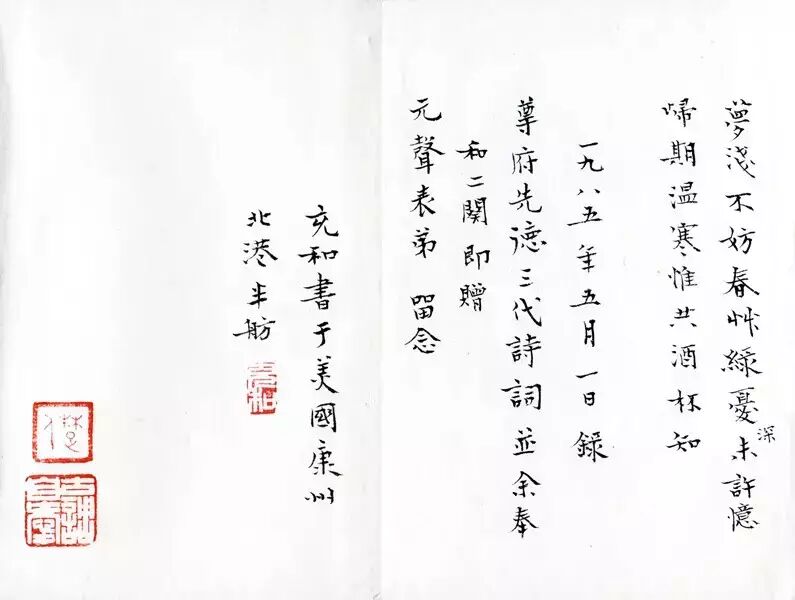 夢淺不妨春艸綠憂深未許憶
歸期温寒惟共酒杯知
一九八五年五月一日錄
尊府先德三代詩詞並余奉
和二闋即贈
元聲表弟 留念
充和書于美國康州
北港半舫
充和